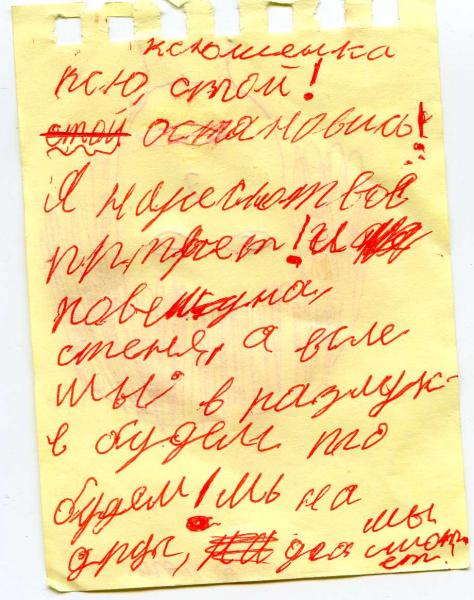 ксюшенька
ксю, стой!
стой остановись!
Я нарисю твой
пртрет! и
повешу на,
стеня, а если
мы в разлук-
е будем то
будем! мь на
друды, два мы